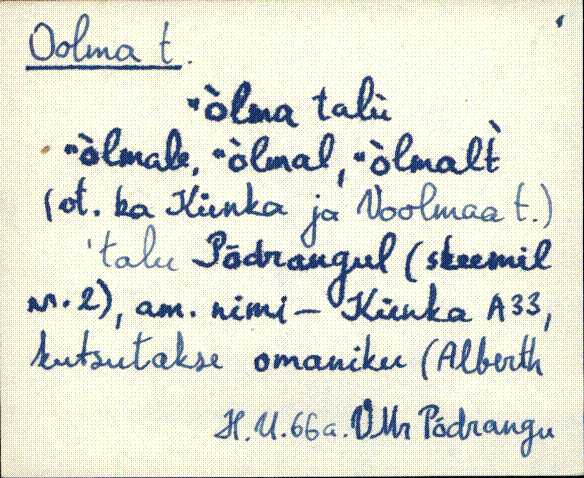 Oolma t.
"òlma talù
"òlmale, "òlmal, "òlmalt̀
(vt. ka Künka ja Voolmaa t.)
'talu Põdrangul (skeemil
nr. 2), am. nimi – Künka A33,
kutsutakse omaniku (Alberth
H.U.66a. VMr Põdrangu